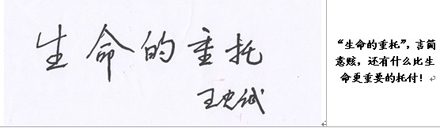 生命的重托
“生命的重托”，言简
意赅，还有什么比生
命更重要的托付！